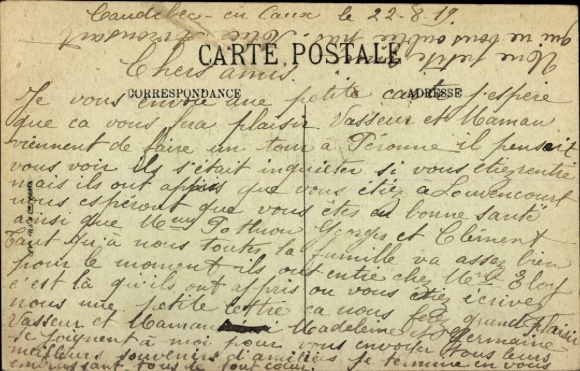 Caudebec-en Caux le 22-8-19
Votre petite
qui ne vous oublie pas
CARTE POSTALE
Chers amis.
CORRESPONDANCE
ADRESSE
Je vous envoie une petite carte j'espère
que ca vous fera plaisir Vasseur et Maman
viennent de faire un tour à Péronne il pensait
vous voir ils s'était inquieter si vous étiez rentré
mais ils ont appris que vous étiez a Louvencourt
nous espéront que vous êtes en bonne santé
ainsi que Georges et Clément
Tant qu'à nous toutes la famille va assez bien
pour le moment ils ont entié chez Eloy
c'est là qu'ils ont appris ou vous étiez écrivez
nous une petite lettre ca nous fera grand plaisir
Vasseur et Maman Madeleine et Germaine
se joignent à moi pour vous envoyer tous leurs
meilleurs souvenirs d'amitiés je termine en vous
embrassant tous de tout cœur.